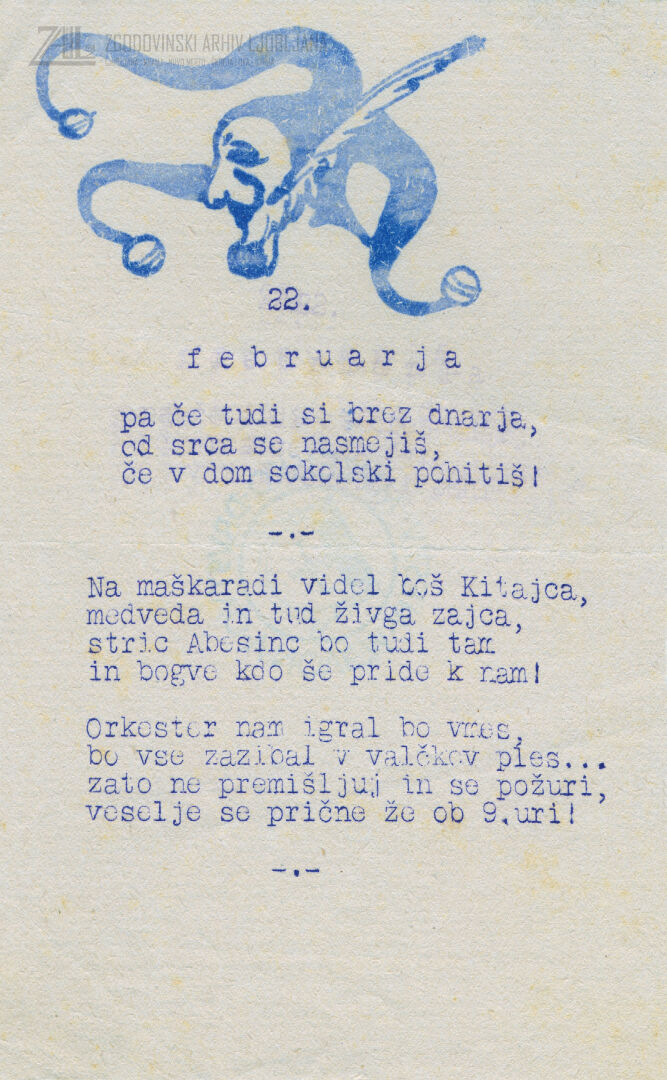 ZGODOVINSKI ARHIV LJUBLJANA
22.
februarja
pa če tudi si brez dnarja,
od srca se nasmejiš,
če v dom sokolski pohitiš!
-.-
Na maškaradi videl boš Kitajca,
medveda in tud živga zajca,
stric Abesinc bo tudi tam
in bogve kdo še pride k nam!
Orkester nam igral bo vmes,
bo vse zazibal v valčkov ples...
zato ne premišljuj in se požuri,
veselje se prične že ob 9.uri!
-.-